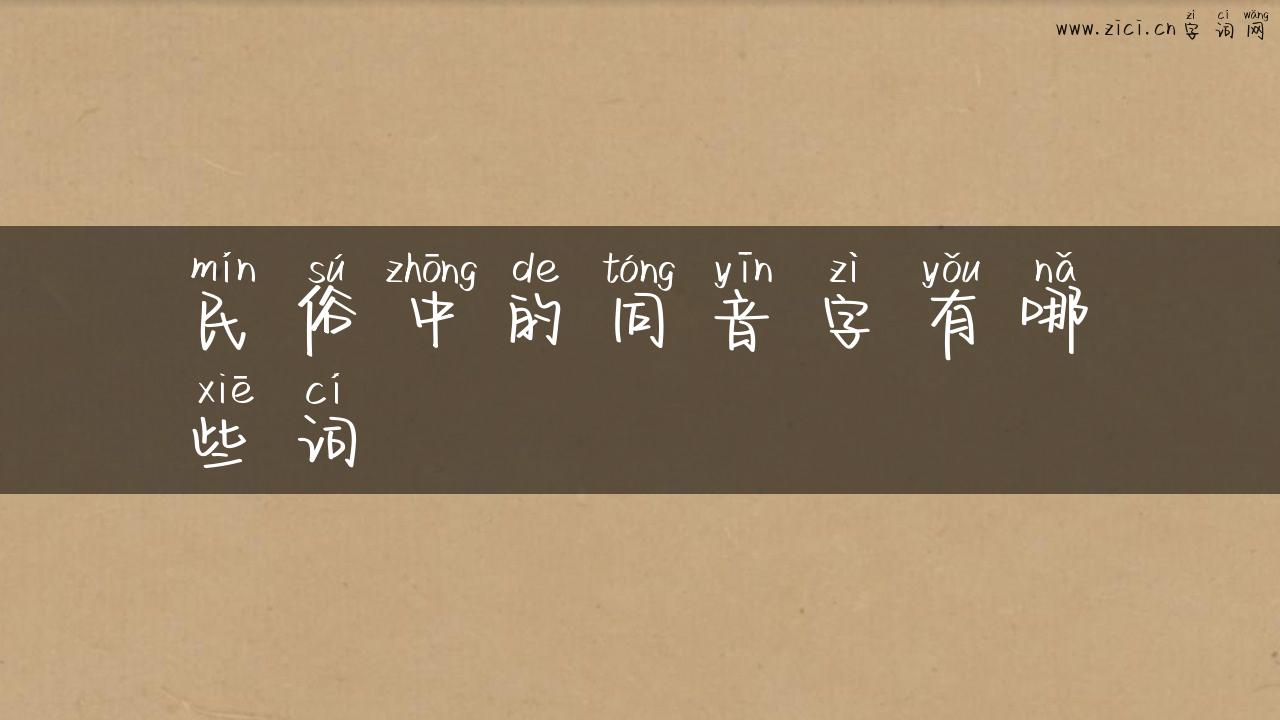 zì cí wǎng
www.zici.cn 字词网
mín sú zhōng de tóng yīn zì yǒu nǎ
民俗中的同音字有哪
xiē cí
些词